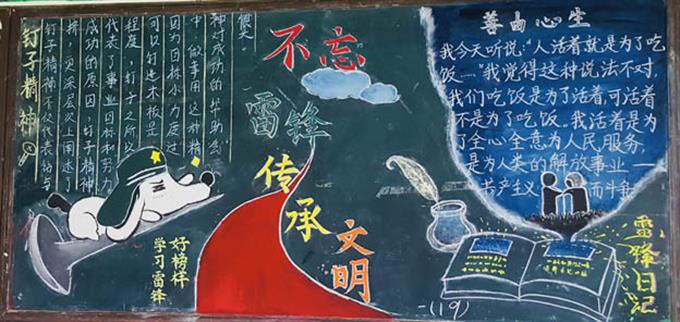 钉子精神
钉子精神不仅代表钻与
挤,更深层次上阐述了
成功的原因,钉子精神
代表了事业目标和努力
程度,钉子之所以
可以钉进木板里
因为目标小力度
中,做事用这种精
神对成功的帮助会
很大。
好榜样
学习雷锋
不忘
雷锋
传承
文明
善由心生
我今天听说:“人活着就是为了吃
饭……”我觉得这种说法不对,
我们吃饭是为了活着,可活着
不是为了吃饭。我活着是为
了全心全意为人民服务,
是为人类的解放事业——
共产主义 而斗争
雷锋日记
(19)